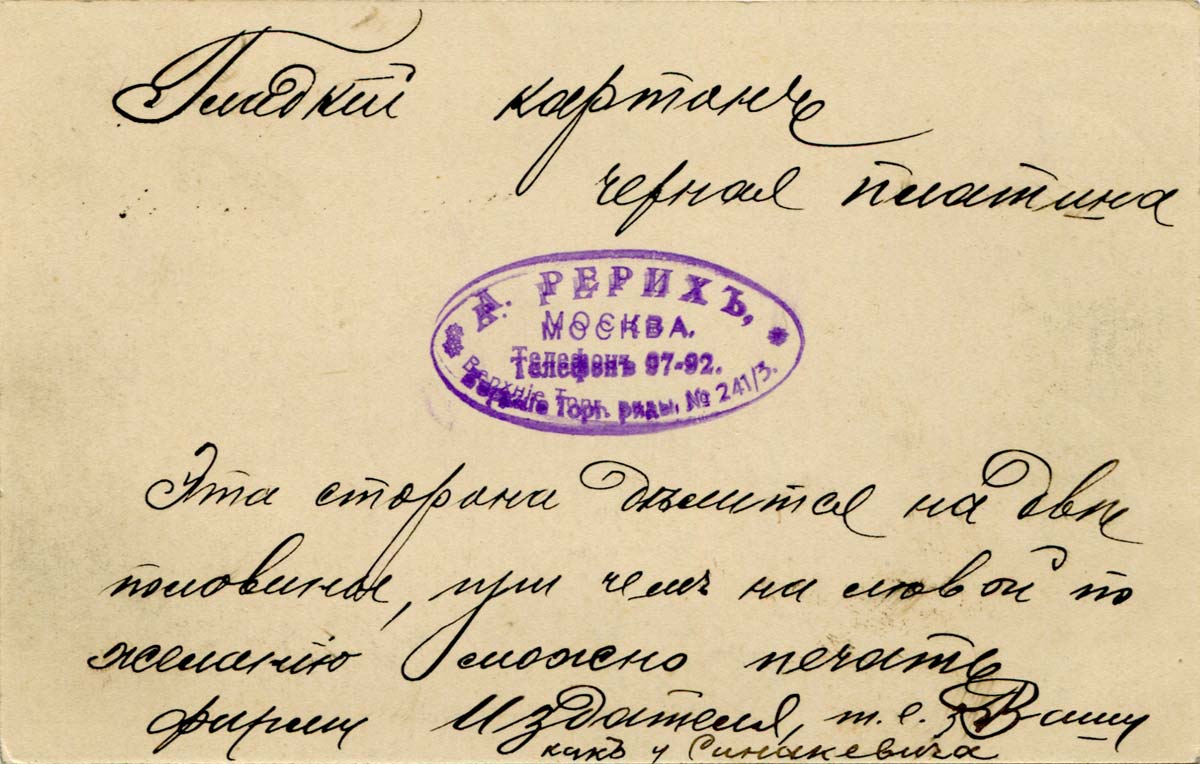 Гладкій картонъ
черная платина
А. РЕРИХЪ,
МОСКВА.
Телефонъ 97-92.
Верхніе Торг. ряды. № 241/3.
Эта сторона дѣлится на двѣ
половины, при чемъ на лѣвой по
желанію можно печать
фирмы Издателя, т.е. Вашу
какъ у Синакевича